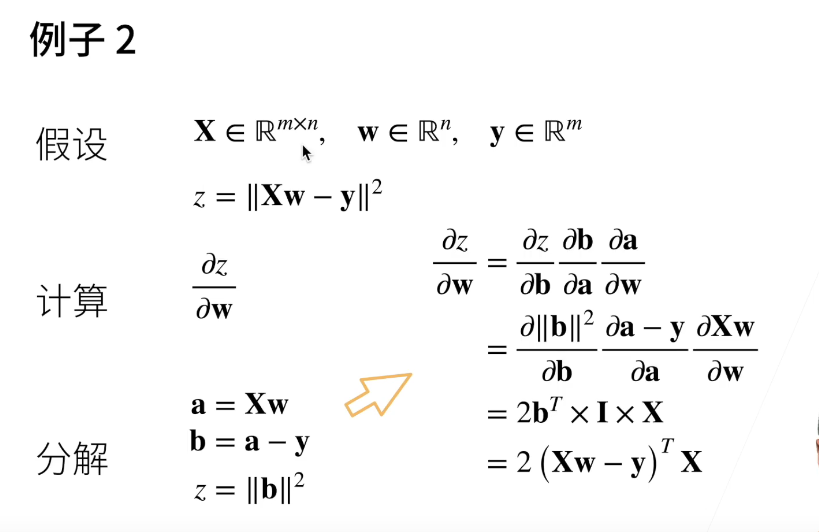 例子 2
假设 X ∈ ℝ^{m×n}, w ∈ ℝ^n, y ∈ ℝ^m
z = ||Xw − y||^2
计算 ∂z/∂w
∂z/∂w = ∂z/∂b ∂b/∂a ∂a/∂w
= ∂||b||^2/∂b ∂a − y/∂a ∂Xw/∂w
= 2b^T × I × X
= 2 (Xw − y)^T X
分解
a = Xw
b = a − y
z = ||b||^2